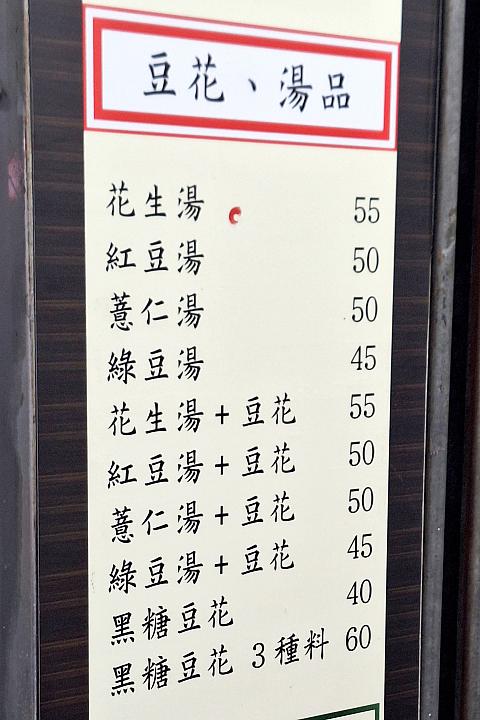 豆花、湯品
花生湯 55
紅豆湯 50
薏仁湯 50
綠豆湯 45
花生湯+豆花 55
紅豆湯+豆花 50
薏仁湯+豆花 50
綠豆湯+豆花 45
黑糖豆花 40
黑糖豆花 3種料 60